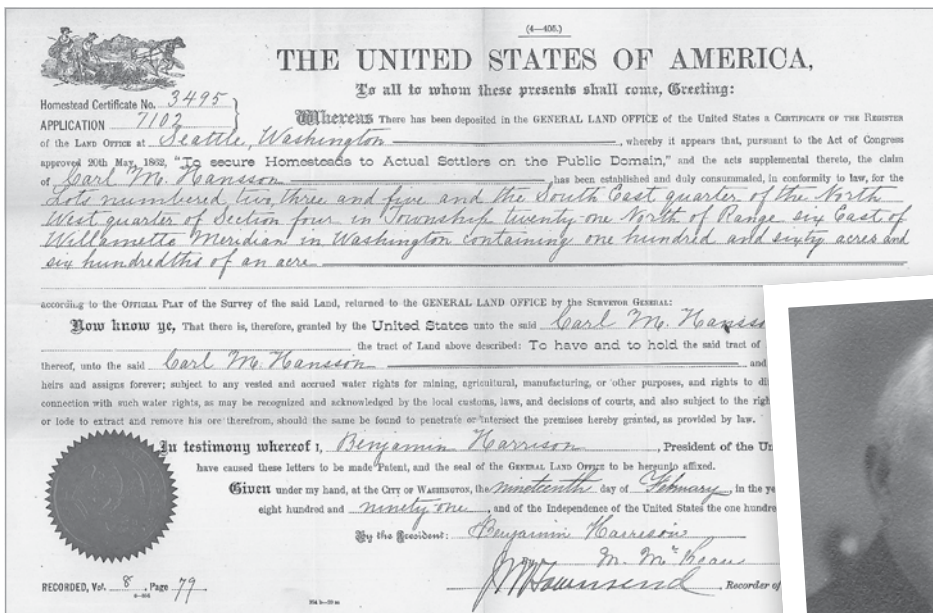 (4—405.)
THE UNITED STATES OF AMERICA,
To all to whom these presents shall come, Greeting:
Homestead Certificate No. 3495
APPLICATION 7102
Whereas There has been deposited in the GENERAL LAND OFFICE of the United States a CERTIFICATE OF THE REGISTER
OF THE LAND OFFICE AT Seattle, Washington, whereby it appears that, pursuant to the Act of Congress
approved 20th May, 1862, "To secure Homesteads to Actual Settlers on the Public Domain," and the acts supplemental thereto, the claim
of Carl M. Hansson has been established and duly consummated, in conformity to law, for the
Lots numbered two, three and five and the South East quarter of the North
West quarter of Section four in Township twenty-one North of Range six East of
Willamette Meridian in Washington containing one hundred and sixty acres and
six hundredths of an acre
according to the OFFICIAL PLAT of the Survey of the said Land, returned to the GENERAL LAND OFFICE by the SURVEYOR GENERAL:
Now know ye, That there is, therefore, granted by the United States unto the said Carl M. Hansso
the tract of Land above described: To have and to hold the said tract of
thereof, unto the said Carl M. Hansson and
heirs and assigns forever; subject to any vested and accrued water rights for mining, agricultural, manufacturing, or other purposes, and rights to di
connection with such water rights, as may be recognized and acknowledged by the local customs, laws, and decisions of courts, and also subject to the righ
or lode to extract and remove his ore therefrom, should the same be found to penetrate or intersect the premises hereby granted, as provided by law.
In testimony whereof I, Benjamin Harrison, President of the Un
have caused these letters to be made Patent, and the seal of the GENERAL LAND OFFICE to be hereunto affixed.
Given under my hand, at the CITY OF WASHINGTON, the nineteenth day of February, in the ye
eight hundred and ninety one, and of the Independence of the United States the one hundre
By the President: Benjamin Harrison
M. McKean
J M Townsend Recorder of
RECORDED, Vol. 8, Page 79